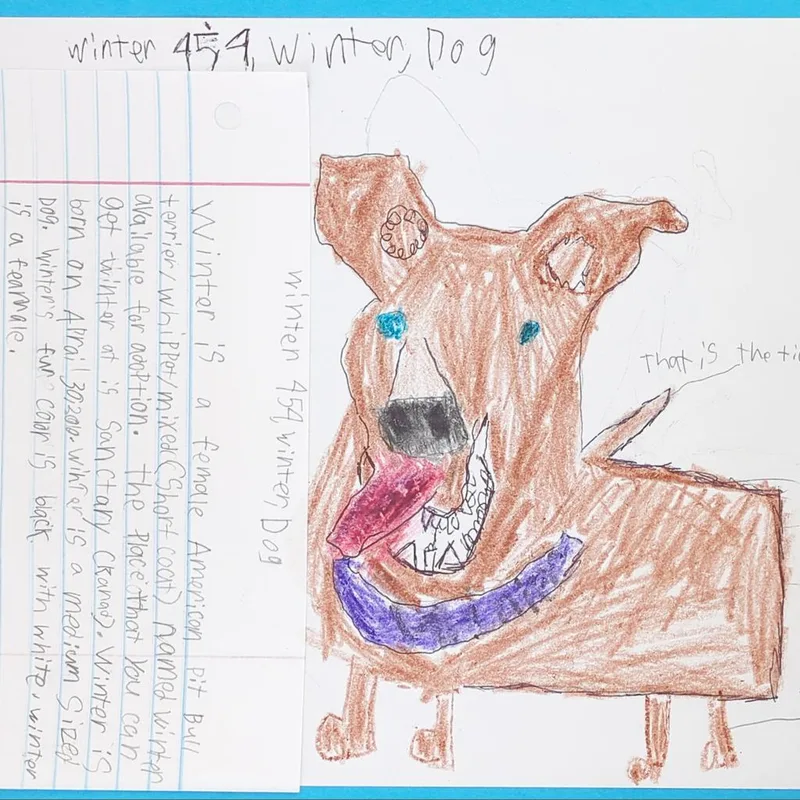 winter 454, Winter, Dog
winter 454, winter, Dog
Winter is a female American pit Bull
terrier/whippet/mixed (Short coat) named winter
available for adoption. the place that you can
get winter at is Sanctary (Kanab). Winter is
born on Aprail 30,2010. winter is a medium sized
Dog. winter's fur color is back with white. winter
is a feamale.
That is the